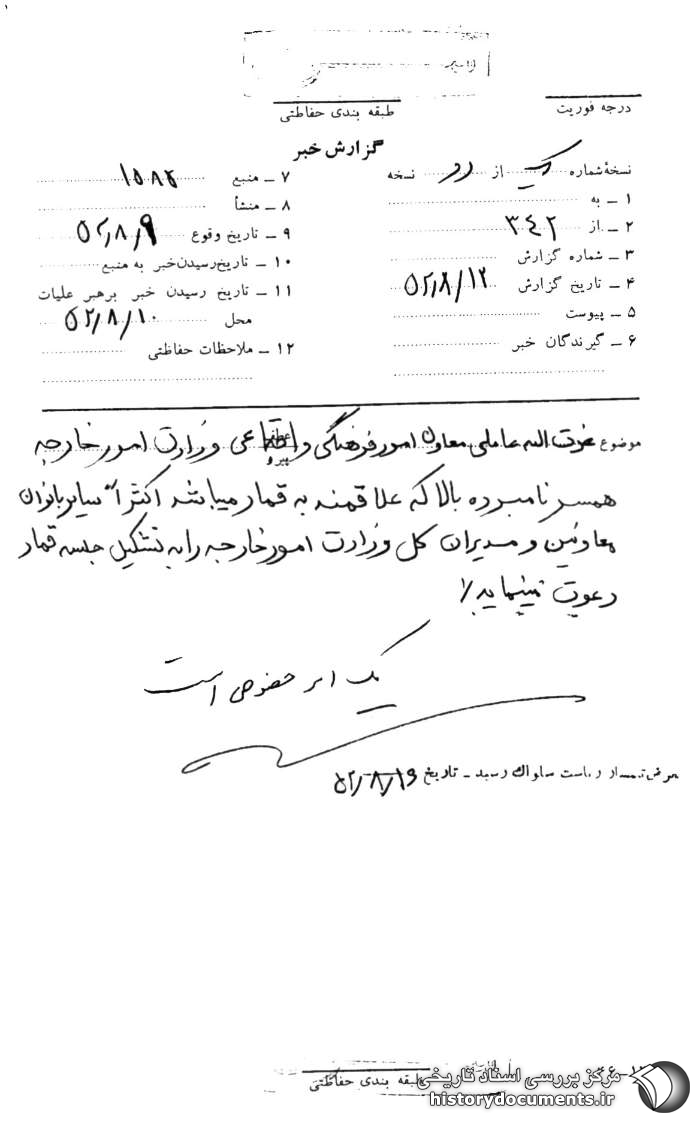 درجه فوریت
طبقه بندی حفاظتی
گزارش خبر
نسخهٔ شماره یک از دو نسخه
۱ – به
۲ – از ۳٤۲
۳ – شماره گزارش
۴ – تاریخ گزارش ۵۲/۸/۱۲
۵ – پیوست
۶ – گیرندگان خبر
۷ – منبع ۱۵۸۲
۸ – منشأ
۹ – تاریخ وقوع ۵۲/۸/۹
۱۰ – تاریخ رسیدن خبر به منبع
۱۱ – تاریخ رسیدن خبر برهبر عملیات
محل ۵۲/۸/۱۰
۱۲ – ملاحظات حفاظتی
موضوع عزت اله عاملی معاون امور فرهنگی و اجتماعی وزارت امور خارجه
همسر نامبرده بالا که علاقمند به قمار میباشد اکثراً سایر بانوان
معاونین و مدیران کل وزارت امور خارجه را به تشکیل جلسه قمار
دعوت مینماید /
یک امر خصوصی است
بعرض تیمسار ریاست ساواک رسید – تاریخ ۵۲/۸/۱۶
طبقه بندی حفاظتی
مرکز بررسی اسناد تاریخی
historydocuments.ir